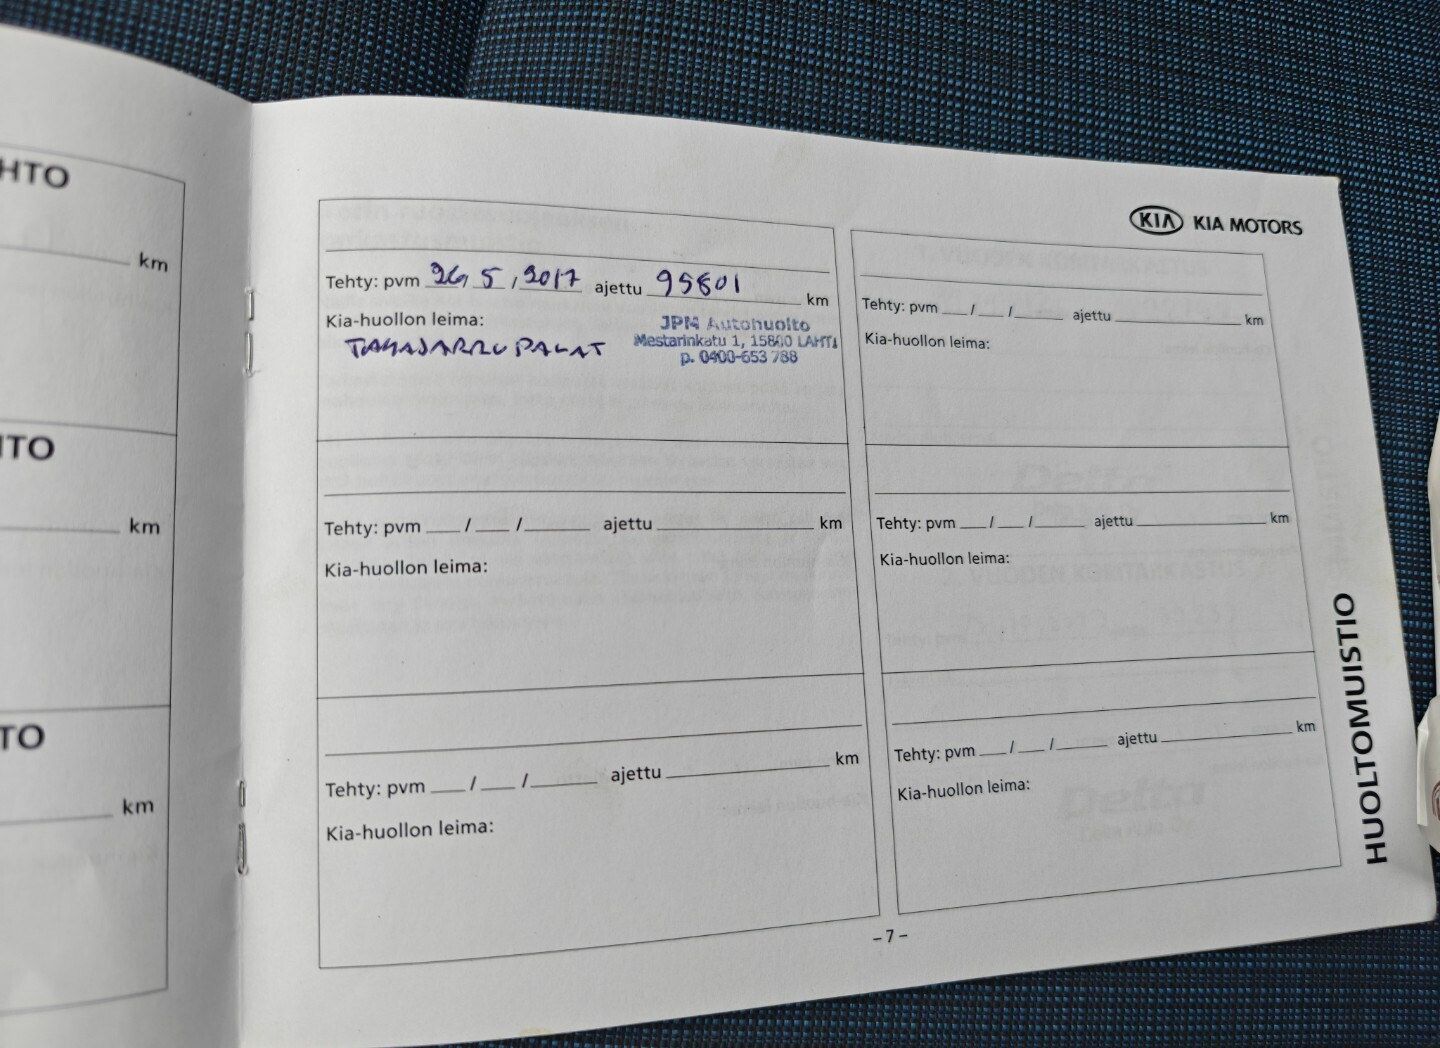 HTO
km
HTO
km
TO
km
KIA KIA MOTORS
Tehty: pvm 26, 5, 2017 ajettu 95801 km
Kia-huollon leima:
TAKAJARRUPALAT
JPM Autohuolto
Mestarinkatu 1, 15800 LAHTI
p. 0400-653 788
Tehty: pvm ___/___/_____ ajettu __________ km
Kia-huollon leima:
Tehty: pvm ___/___/_____ ajettu __________ km
Kia-huollon leima:
Tehty: pvm ___/___/_____ ajettu __________ km
Kia-huollon leima:
Tehty: pvm ___/___/_____ ajettu __________ km
Kia-huollon leima:
Tehty: pvm ___/___/_____ ajettu __________ km
Kia-huollon leima:
HUOLTOMUISTIO
– 7 –